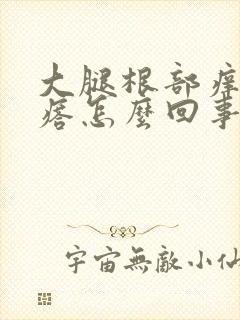 大腿根部痒
痞怎麼回事
宇宙無敵小仙